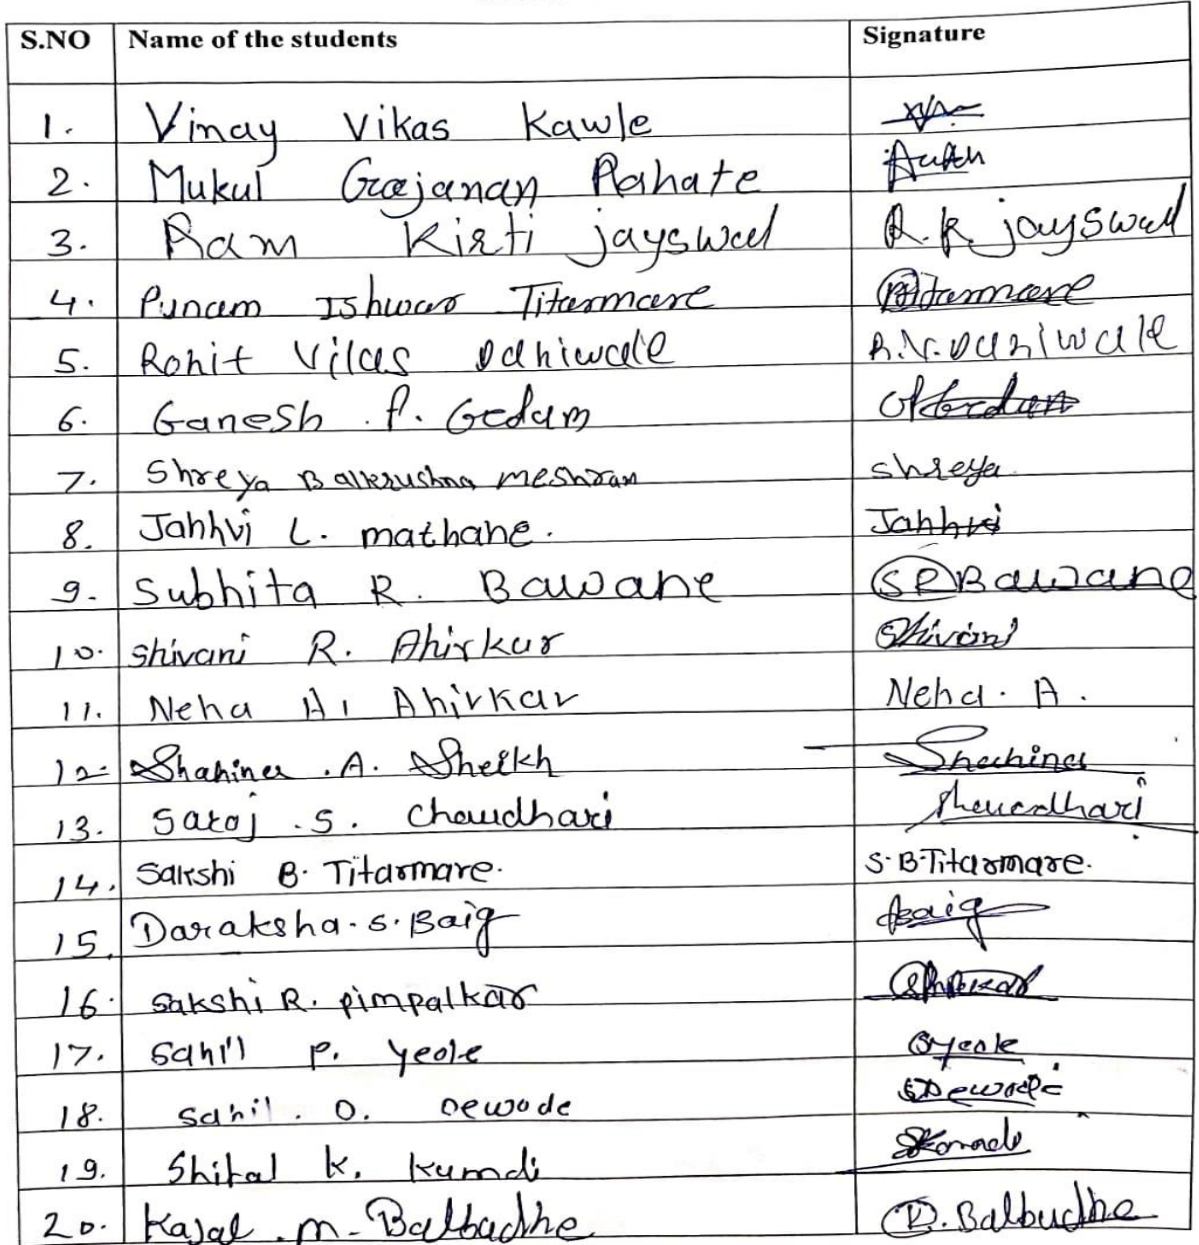 S.NO Name of the students Signature
1. Vinay Vikas Kawle
2. Mukul Gajanan Rahate
3. Ram Kirti jayswal R. K. jayswal
4. Punam Ishwar Titarmare Titarmare
5. Rohit Vilas Dahiwale R.V. Dahiwale
6. Ganesh P. Gedam
7. Shreya Balkrushna meshram shreya
8. Jahhvi L. mathane. Jahhvi
9. Subhita R. Bawane SRBawane
10. Shivani R. Ahirkar Shivani
11. Neha H. Ahirkar Neha. A.
12. Shahina .A. Sheikh Shahina
13. Saroj .S. Chaudhari Chaudhari
14. Sakshi B. Titarmare. S.B Titarmare.
15. Daraksha.S.Baig Baig
16. Sakshi R. pimpalkar
17. Sahil P. Yeole Yeole
18. Sahil. D. Dewode
19. Shital K. Kumdi
20. Kajal .m. Balbudhe Balbudhe